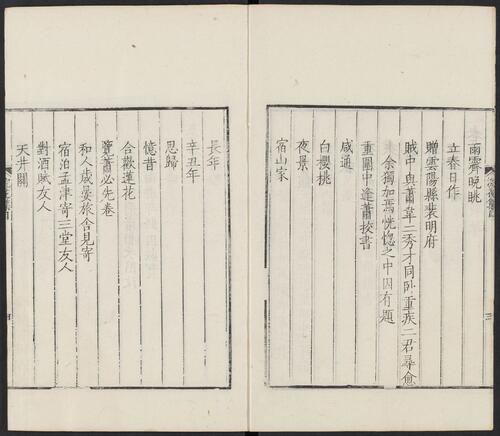 雨霽晚眺
立春日作
贈雲陽縣裴明府
賊中與蕭韋二秀才同臥重疾二君尋愈
余獨加焉恍惚之中因有題
重圍中逢蕭校書
咸通
白櫻桃
夜景
宿山家
長年
辛丑年
思歸
憶昔
合歡蓮花
覽蕭必先卷
和人歲晏旅舍見寄
宿泊孟津寄三堂友人
對酒賦友人
天井關